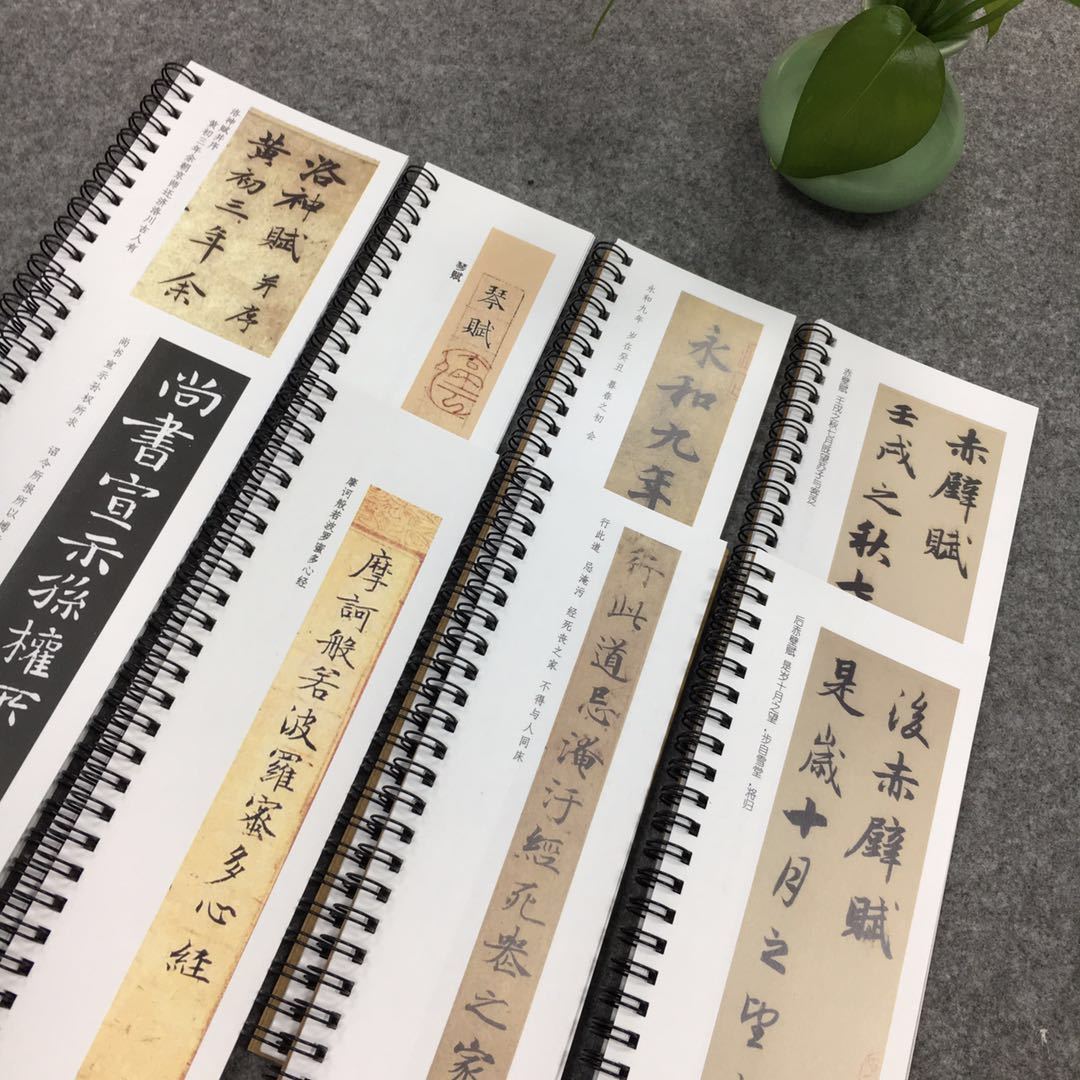 洛神賦 并序
黄初三年 余
洛神赋并序
黄初三年 余朝京师还济洛川古人有
琴賦
琴赋
永和九年
永和九年 岁在癸丑 暮春之初 会
赤壁賦
壬戌之秋七
赤壁赋 壬戌之秋七月既望苏子与客泛
尚書宣示孫權所
尚书宣示孙权所求 诏令所报所以博
摩訶般若波羅蜜多心経
摩诃般若波罗蜜多心经
行此道忌淹汙經死喪之家
行此道 忌淹污 经死丧之家 不得与人同床
後赤壁賦
是歲十月之望
后赤壁赋 是岁十月之望·步自雪堂·将归